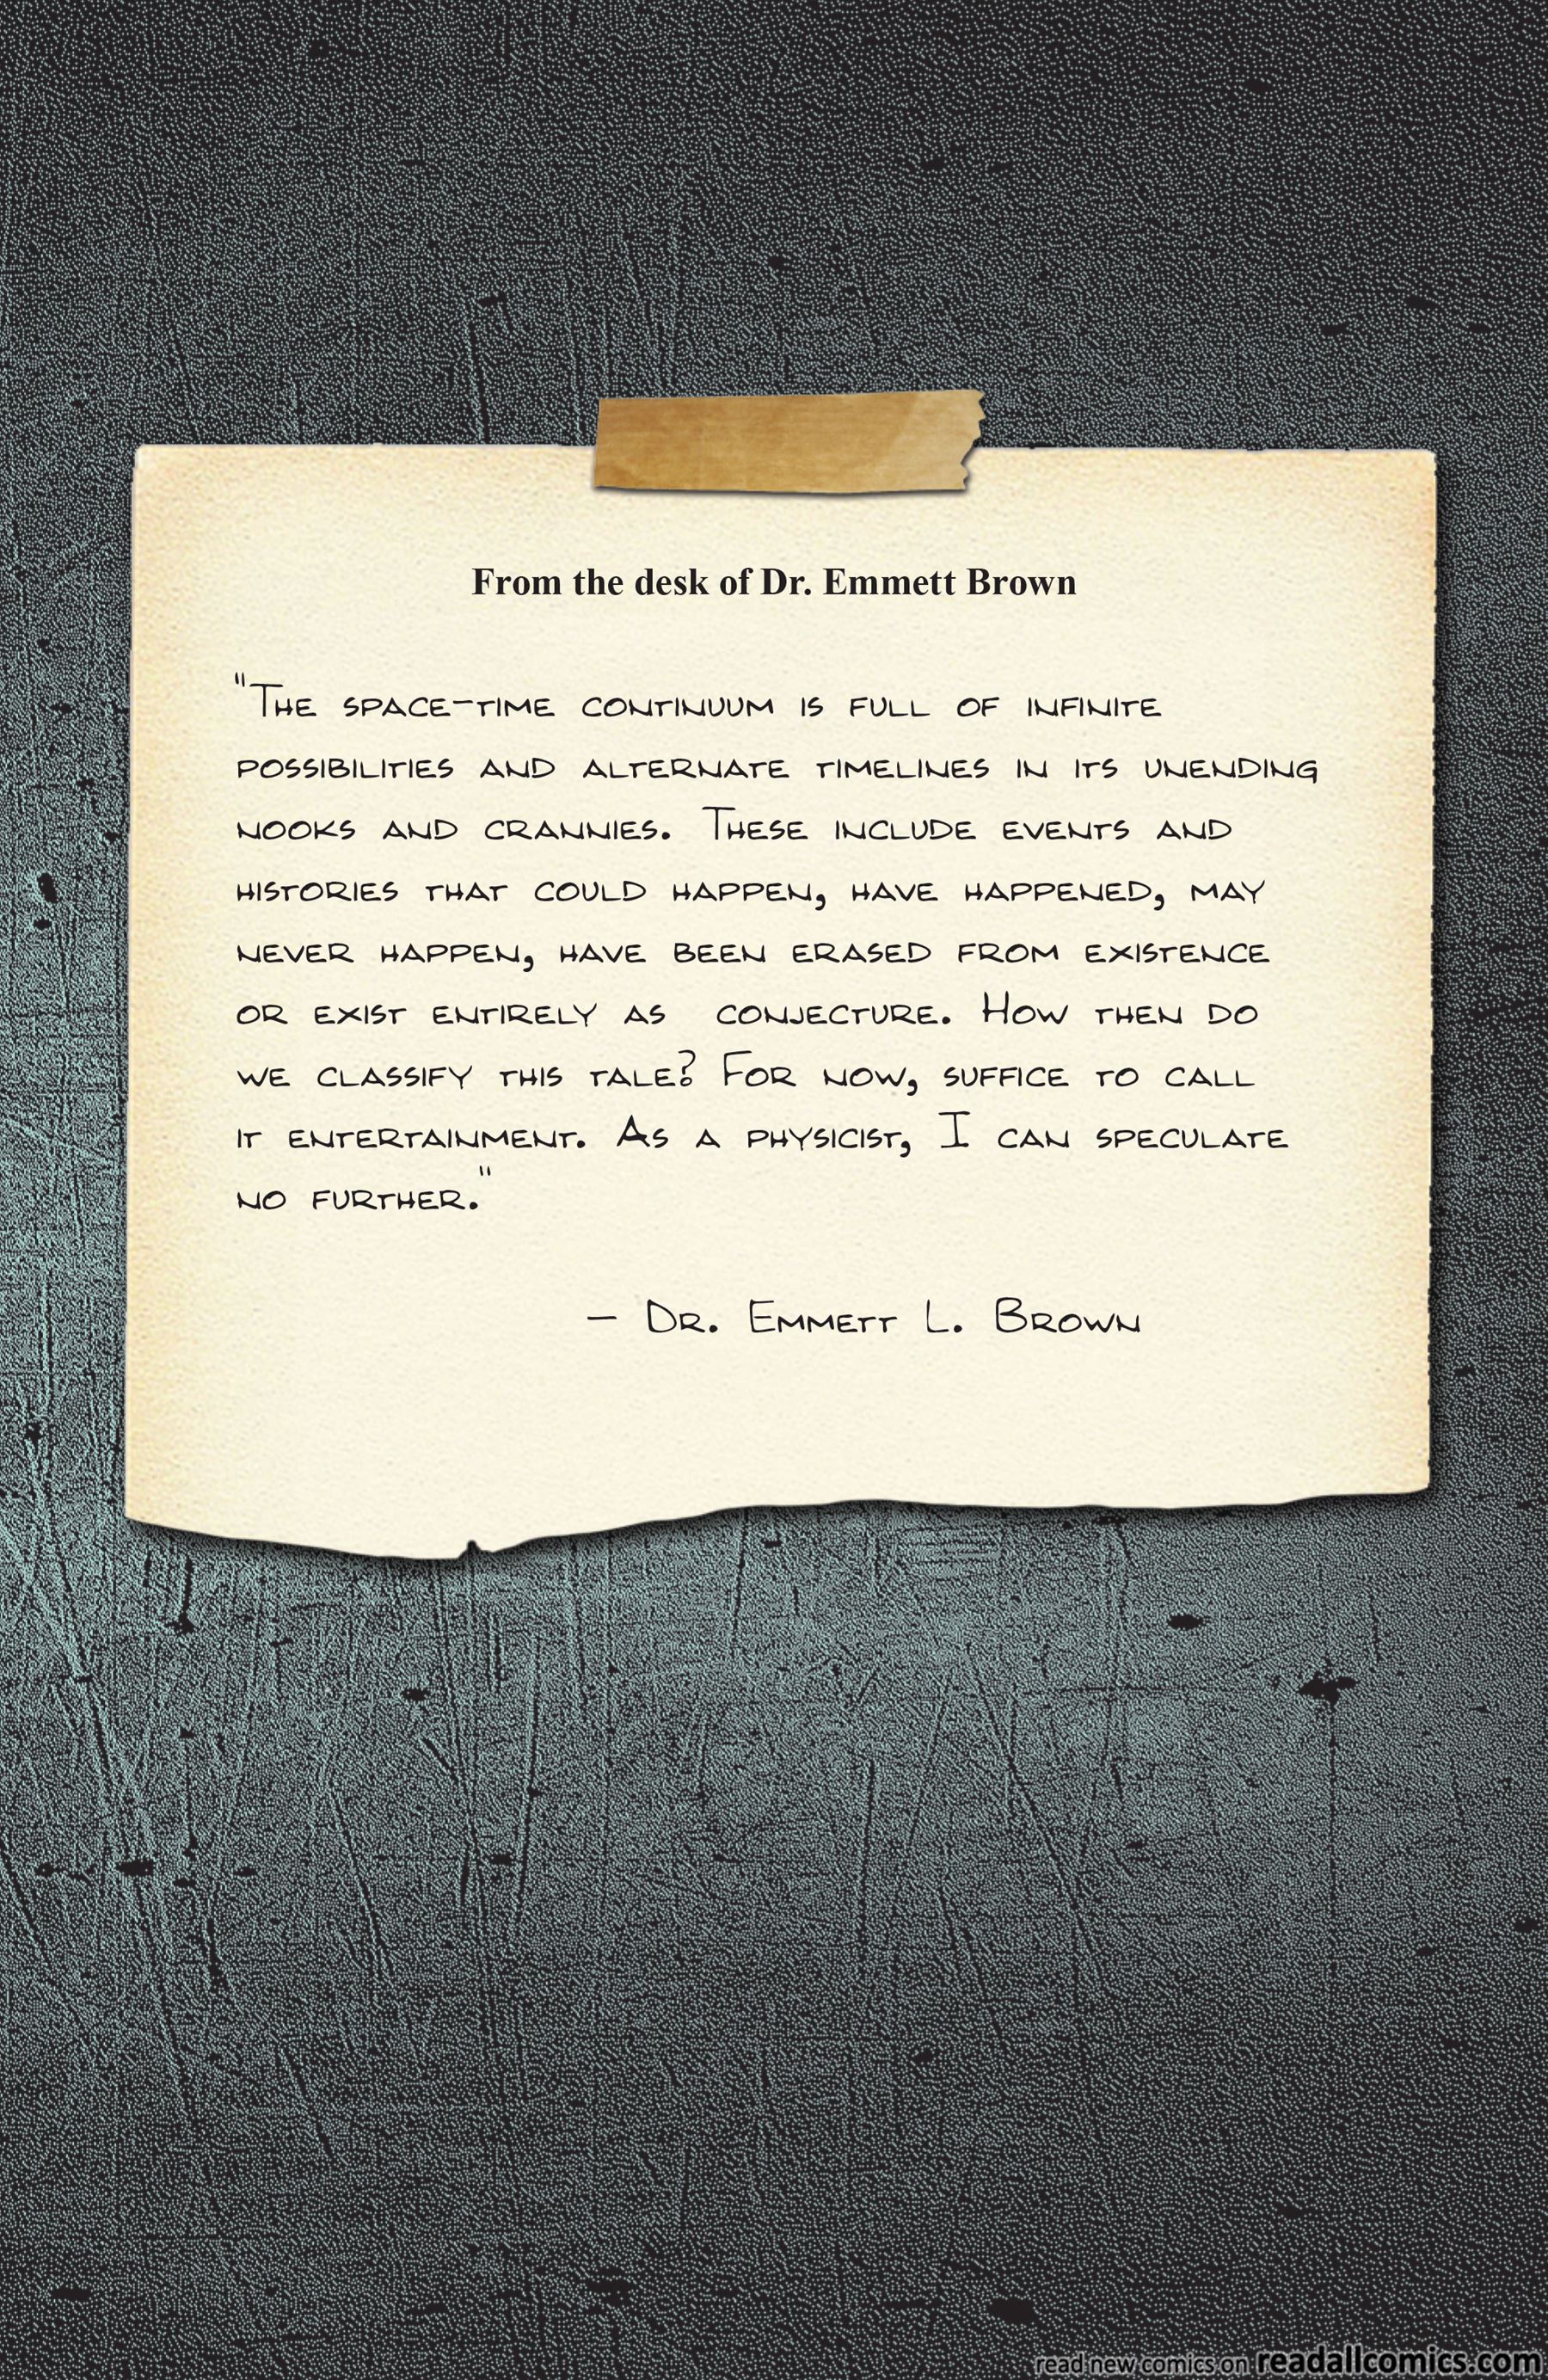 From the desk of Dr. Emmett Brown
"The space-time continuum is full of infinite
possibilities and alternate timelines in its unending
nooks and crannies. These include events and
histories that could happen, have happened, may
never happen, have been erased from existence
or exist entirely as conjecture. How then do
we classify this tale? For now, suffice to call
it entertainment. As a physicist, I can speculate
no further."
– Dr. Emmett L. Brown
read new comics on readallcomics.com